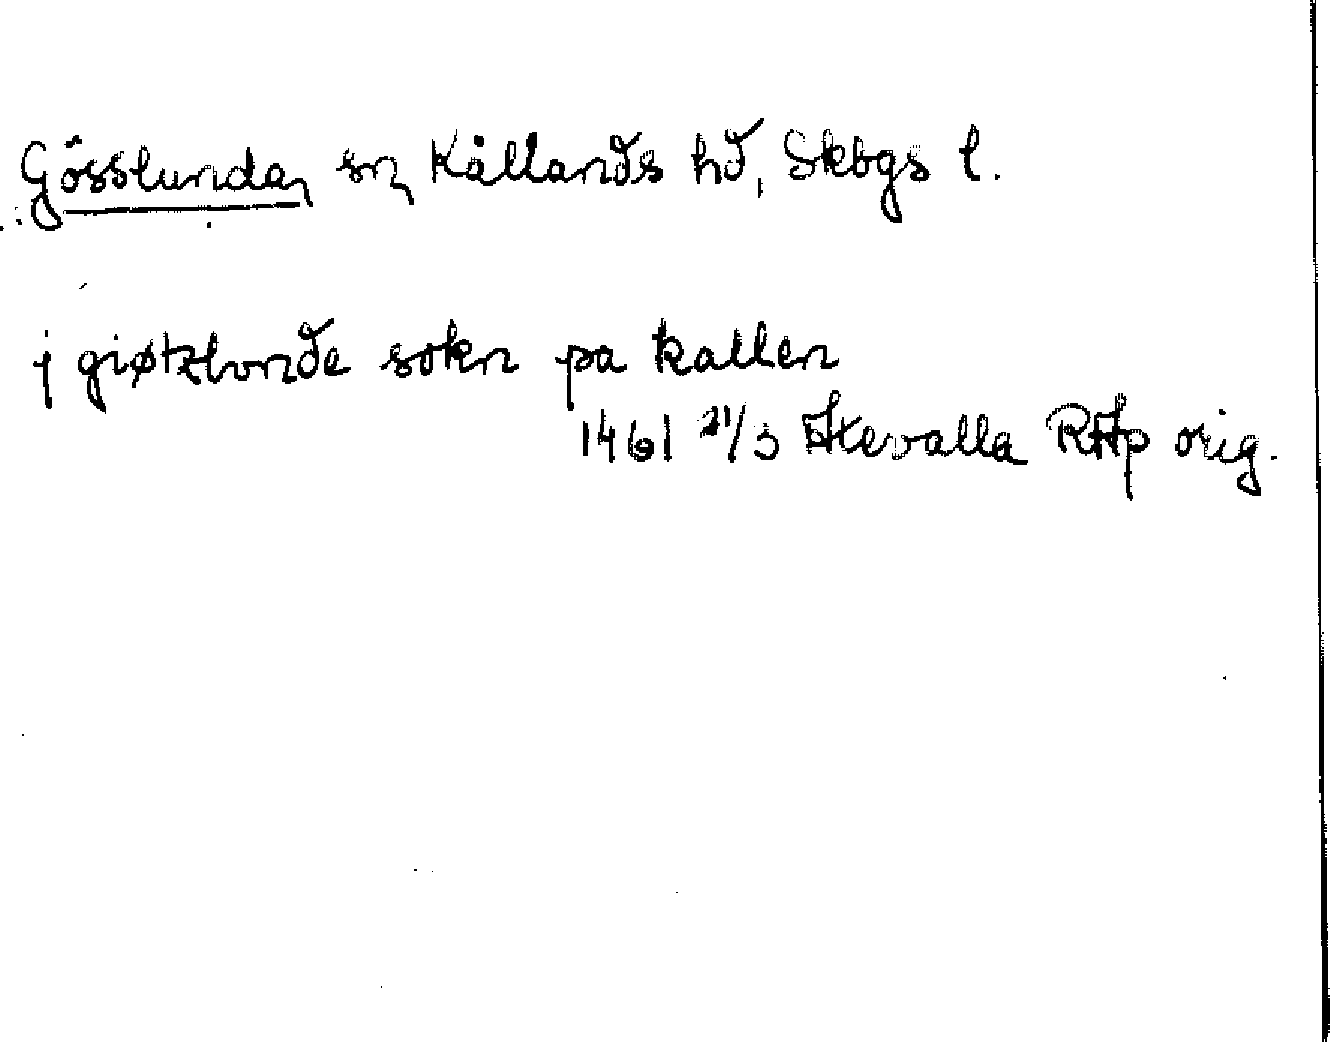 Gösslunda, sn, Kållands hd, Skbgs l.
j giøtzlvnde sokn pa kallen
1461 21/3 Htevalla RHp orig.